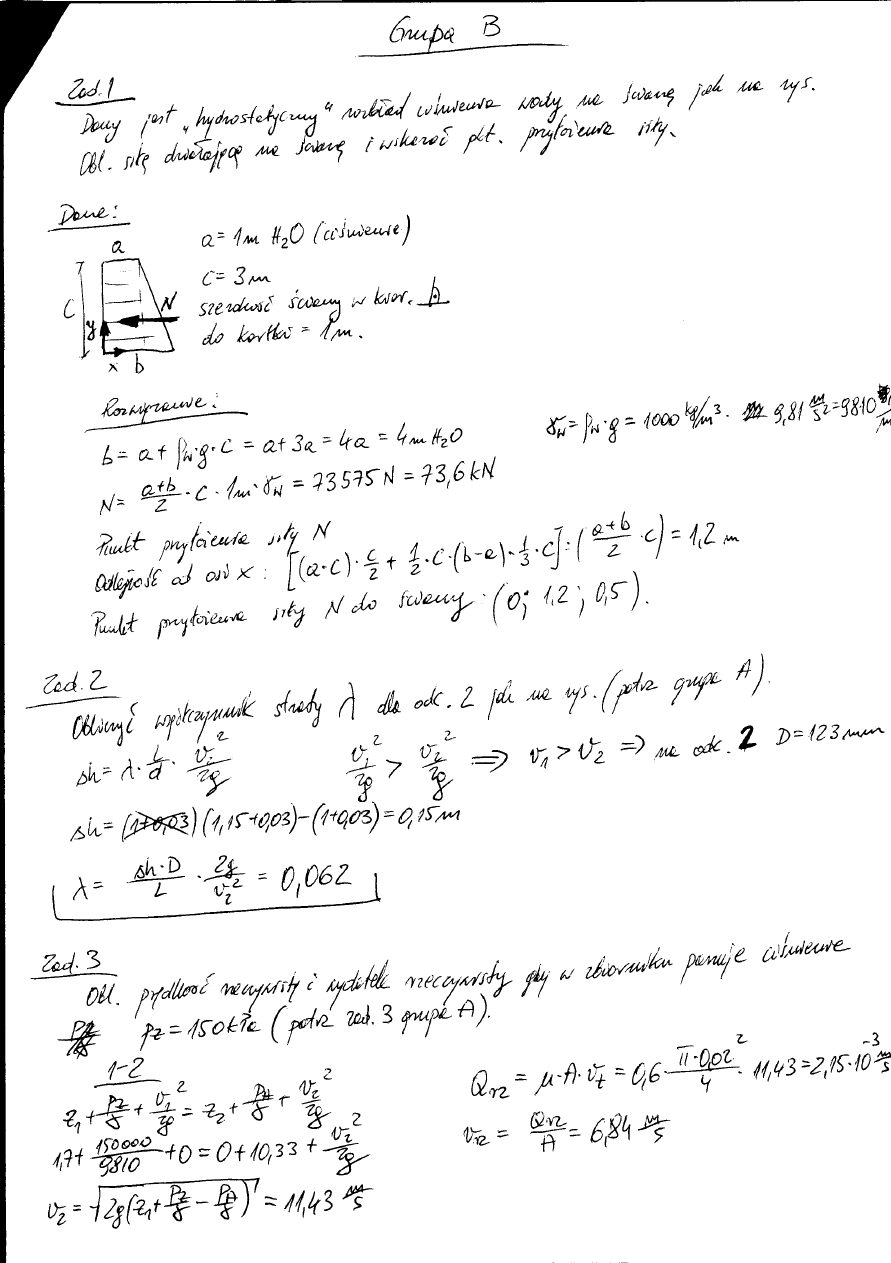 Grupa B
Zad. 1
Dany jest „hydrostatyczny" rozkład ciśnienia wody na ścianę jak na rys.
Obl. siłę działającą na ścianę i wskazać pkt. przyłożenia siły.
Dane:
a = 1m H₂O (ciśnienie)
c = 3m
szerokość ściany w kier. ⊥
do kartki = 1m.
a
C
y
N
x b
Rozwiązanie:
b = a + ρw·g·c = a + 3a = 4a = 4m H₂O
γw = ρw·g = 1000 kg/m³ · 9,81 m/s² = 9810
N = (a+b)/2 · c · 1m · γw = 73575 N = 73,6 kN
Punkt przyłożenia siły N
Odległość od osi x: [(a·c)·c/2 + 1/2·c·(b-a)·1/3·c] : ((a+b)/2 ·c) = 1,2 m
Punkt przyłożenia siły N do ściany: (0; 1,2; 0,5).
Zad. 2
Obliczyć współczynnik straty λ dla odc. 2 jak na rys. (patrz grupa A).
Δh = λ · L/d · v₂²/2g
v₁²/2g > v₂²/2g ⇒ v₁ > v₂ ⇒ na odc. 2 D = 123 mm
Δh = (1+0,03) (1,15+0,03) − (1+0,03) = 0,15m
λ = Δh·D/L · 2g/v₂² = 0,062
Zad. 3
Obl. prędkość rzeczywistą i wydatek rzeczywisty gdy w zbiorniku panuje ciśnienie
pz = 150 kPa (patrz zad. 3 grupa A).
1-2
z₁ + pz/γ + v₁²/2g = z₂ + pA/γ + v₂²/2g
1,7 + 150000/9810 + 0 = 0 + 10,33 + v₂²/2g
v₂ = √(2g(z₁ + pz/γ − pA/γ)) = 11,43 m/s
Qrz = μ·A·vt = 0,6 · π·0,02²/4 · 11,43 = 2,15·10⁻³ m/s
vrz = Qrz/A = 6,84 m/s